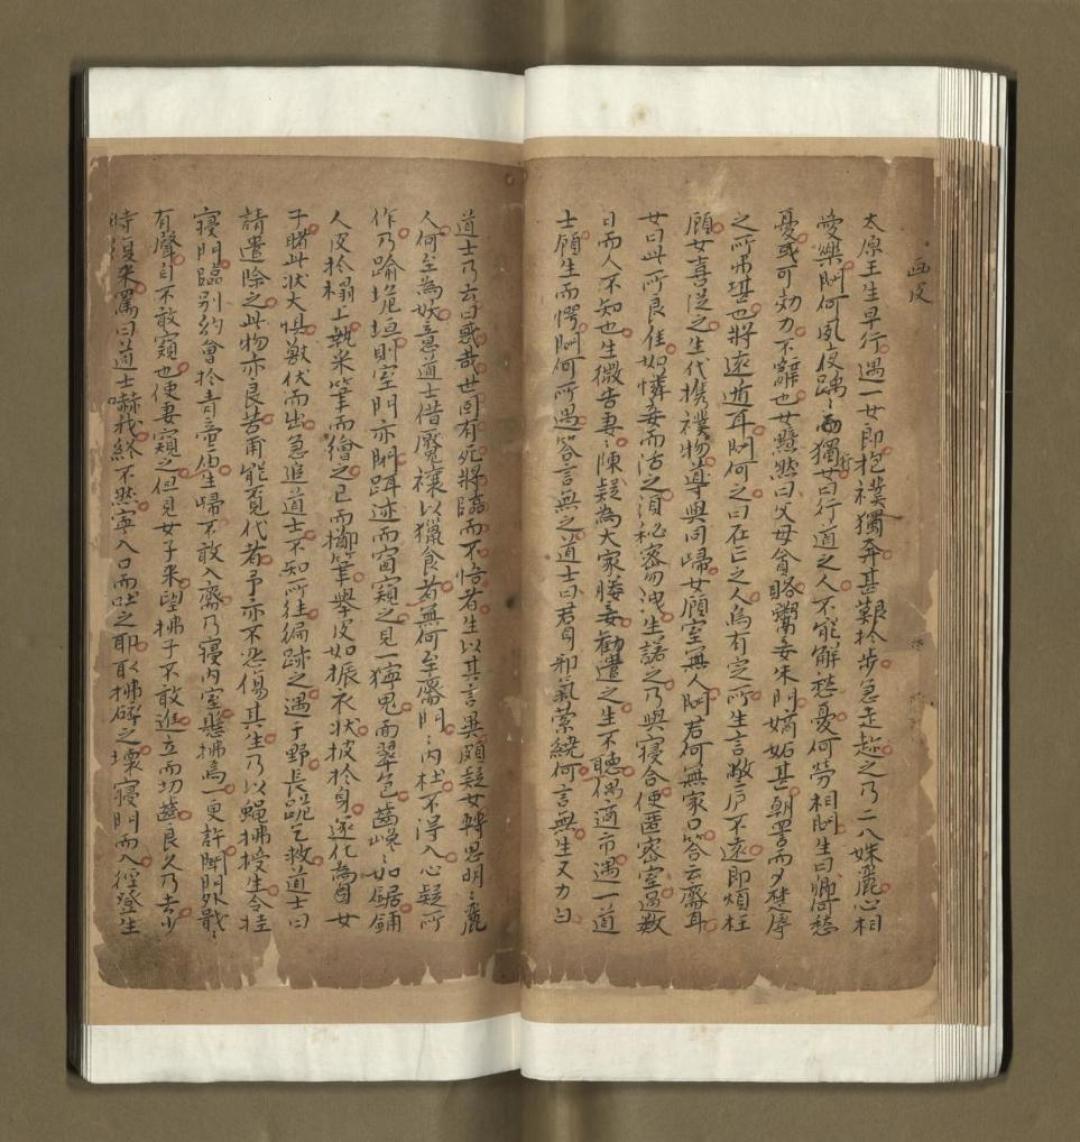 画皮
太原王生早行遇一女郎抱襆獨奔甚艱於步急走趁之乃二八姝麗心相
愛樂問何夙夜踽〻獨行女曰行道之人不能解愁憂何勞相問生曰卿何愁
憂或可効力不辭也女黯然曰父母貪賂鬻妾朱門嫡妒甚朝詈而夕楚辱
之所弗堪也將遠遁耳問何之曰在亡之人烏有定所生言敝廬不遠即煩枉
顧女喜從之生代携襆物導與同歸女顧室無人問君何無家口答云齋耳
女曰此所良佳如憐妾而活之須秘密勿洩生諾之乃與寢合使匿密室過數
日而人不知也生微告妻〻陳疑為大家媵妾勸遣之生不聽偶適市遇一道
士顧生而愕問何所遇答言無之道士曰君身邪氣縈繞何言無生又力白
道士乃去曰惑哉世固有死將臨而不悟者生以其言異頗疑女轉思明〻麗
人何至為妖意道士借魘禳以獵食者無何至齋門〻內杜不得入心疑所
作乃踰垝垣則室門亦閉躡迹而窗窺之見一獰鬼面翠色齒巉〻如鋸鋪
人皮於榻上執采筆而繪之已而擲筆舉皮如振衣狀披於身遂化為女
子睹此狀大懼獸伏而出急追道士不知所往徧跡之遇于野長跪乞救道士曰
請遣除之此物亦良苦甫能覓代者予亦不忍傷其生乃以蠅拂授生令挂
寢門臨別約會於青帝廟生歸不敢入齋乃寢內室懸拂焉一更許聞門外戢〻
有聲自不敢窺也使妻窺之但見女子來望拂子不敢進立而切齒良久乃去少
時復來罵曰道士嚇我終不然寧入口而吐之耶取拂碎之壞寢門而入徑登生